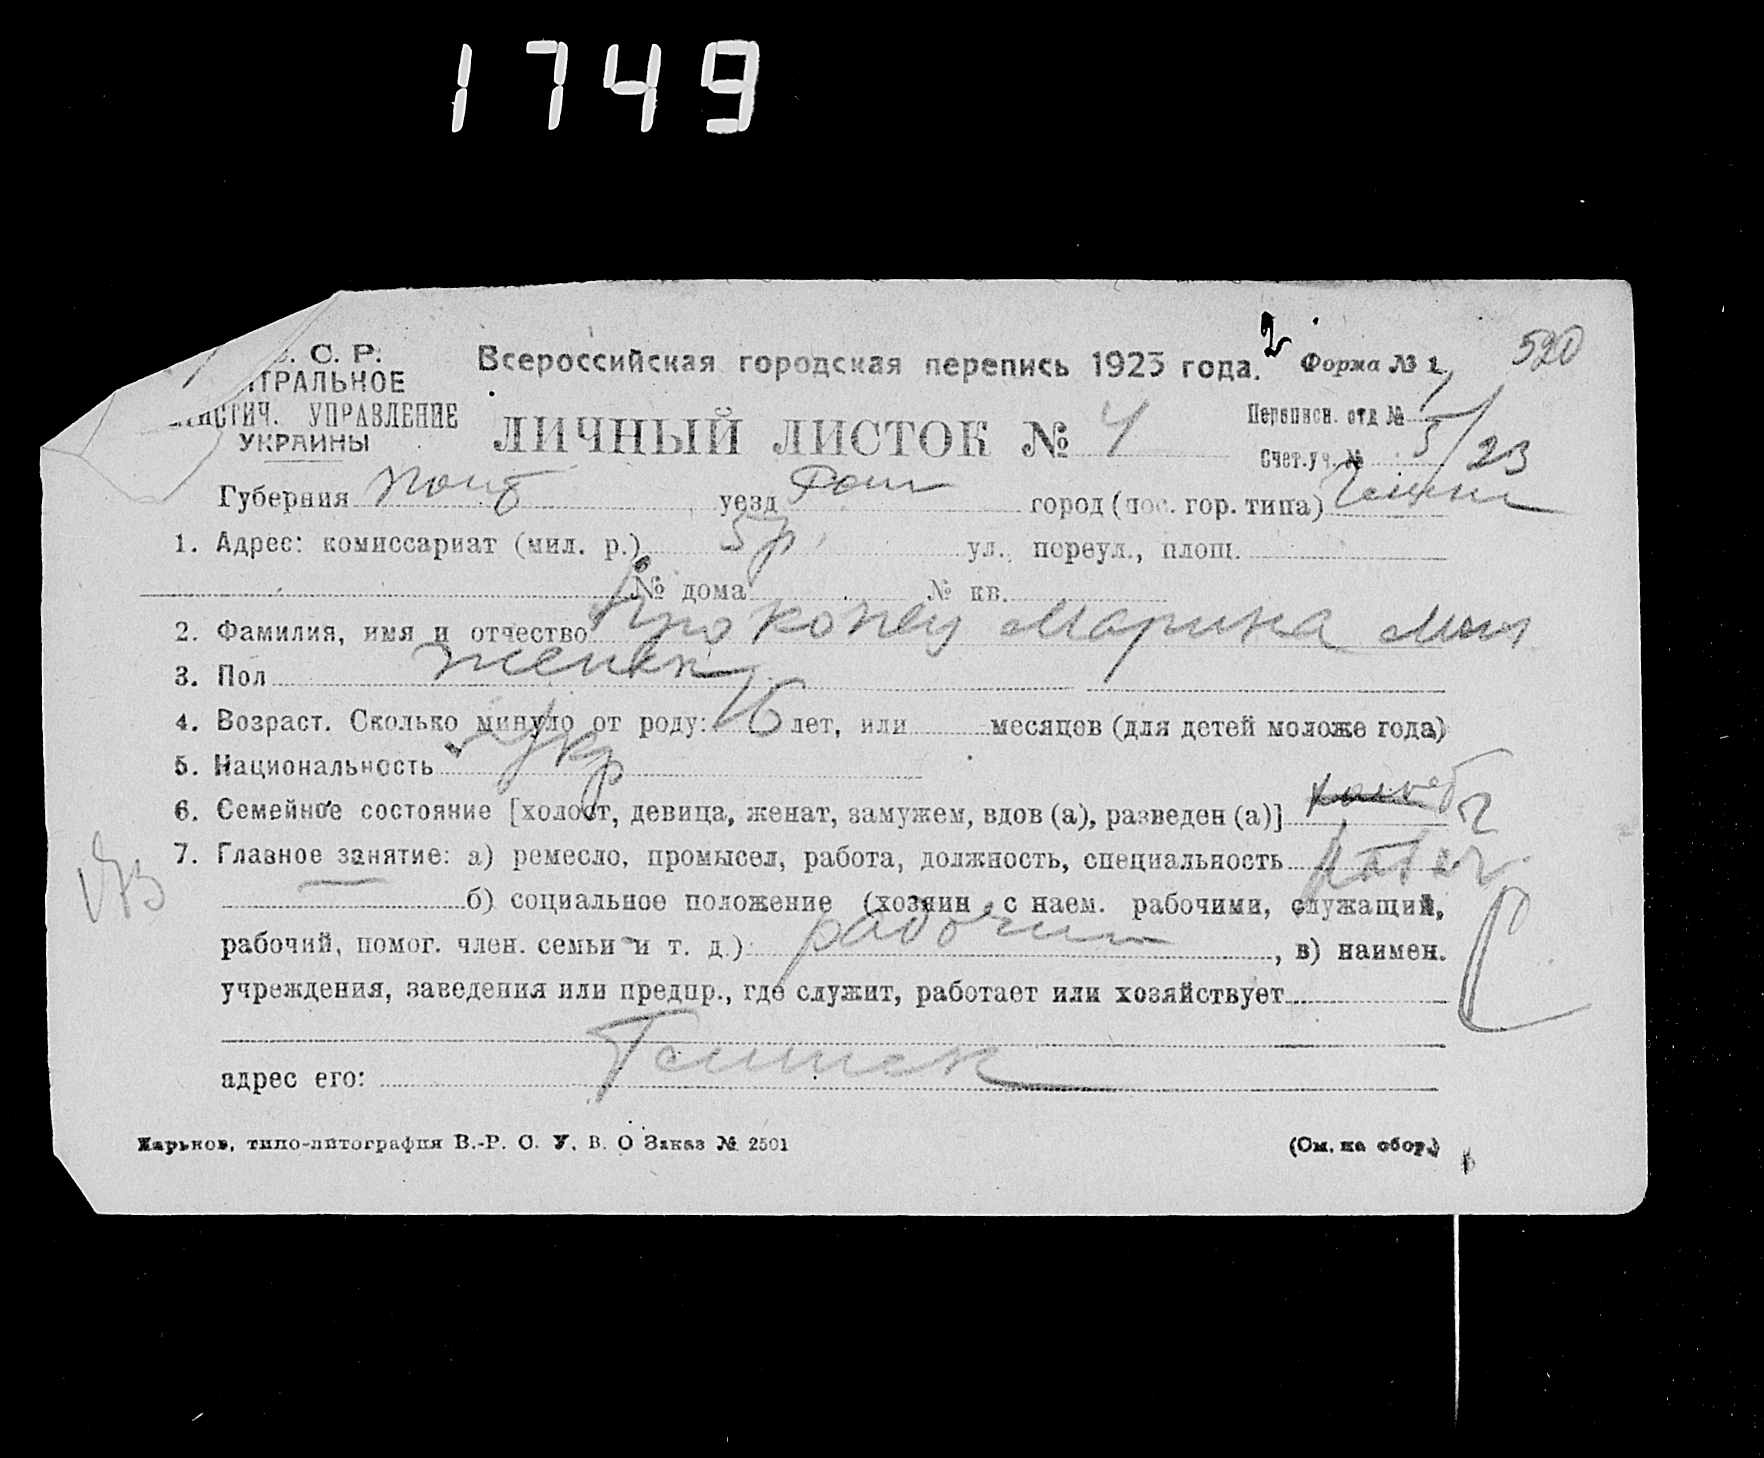 1749
С. Р.
НТРАЛЬНОЕ
ТИСТИЧ. УПРАВЛЕНИЕ
УКРАИНЫ
Всероссийская городская перепись 1923 года.
2 Форма № 1
520
ЛИЧНЫЙ ЛИСТОК № 4
Переписн. отд №
Счет.уч. № 5/23
Губерния уезд город (пос. гор. типа)
1. Адрес: комиссариат (мил. р.) 5 р. ул., переул., площ.
№ дома № кв.
2. Фамилия, имя и отчество Прокопец Марина
3. Пол женск
4. Возраст. Сколько минуло от роду: 16 лет, или месяцев (для детей моложе года)
5. Национальность Укр
6. Семейное состояние [холост, девица, женат, замужем, вдов (а), разведен (а)]
7. Главное занятие: а) ремесло, промысел, работа, должность, специальность
б) социальное положение (хозяин с наем. рабочими, служащий,
рабочий, помог. член. семьи и т. д.) рабочий, в) наимен.
учреждения, заведения или предпр., где служит, работает или хозяйствует
адрес его:
Харьков, типо-литография В.-Р. С. У. В. О Заказ № 2501
(См. на обор.)